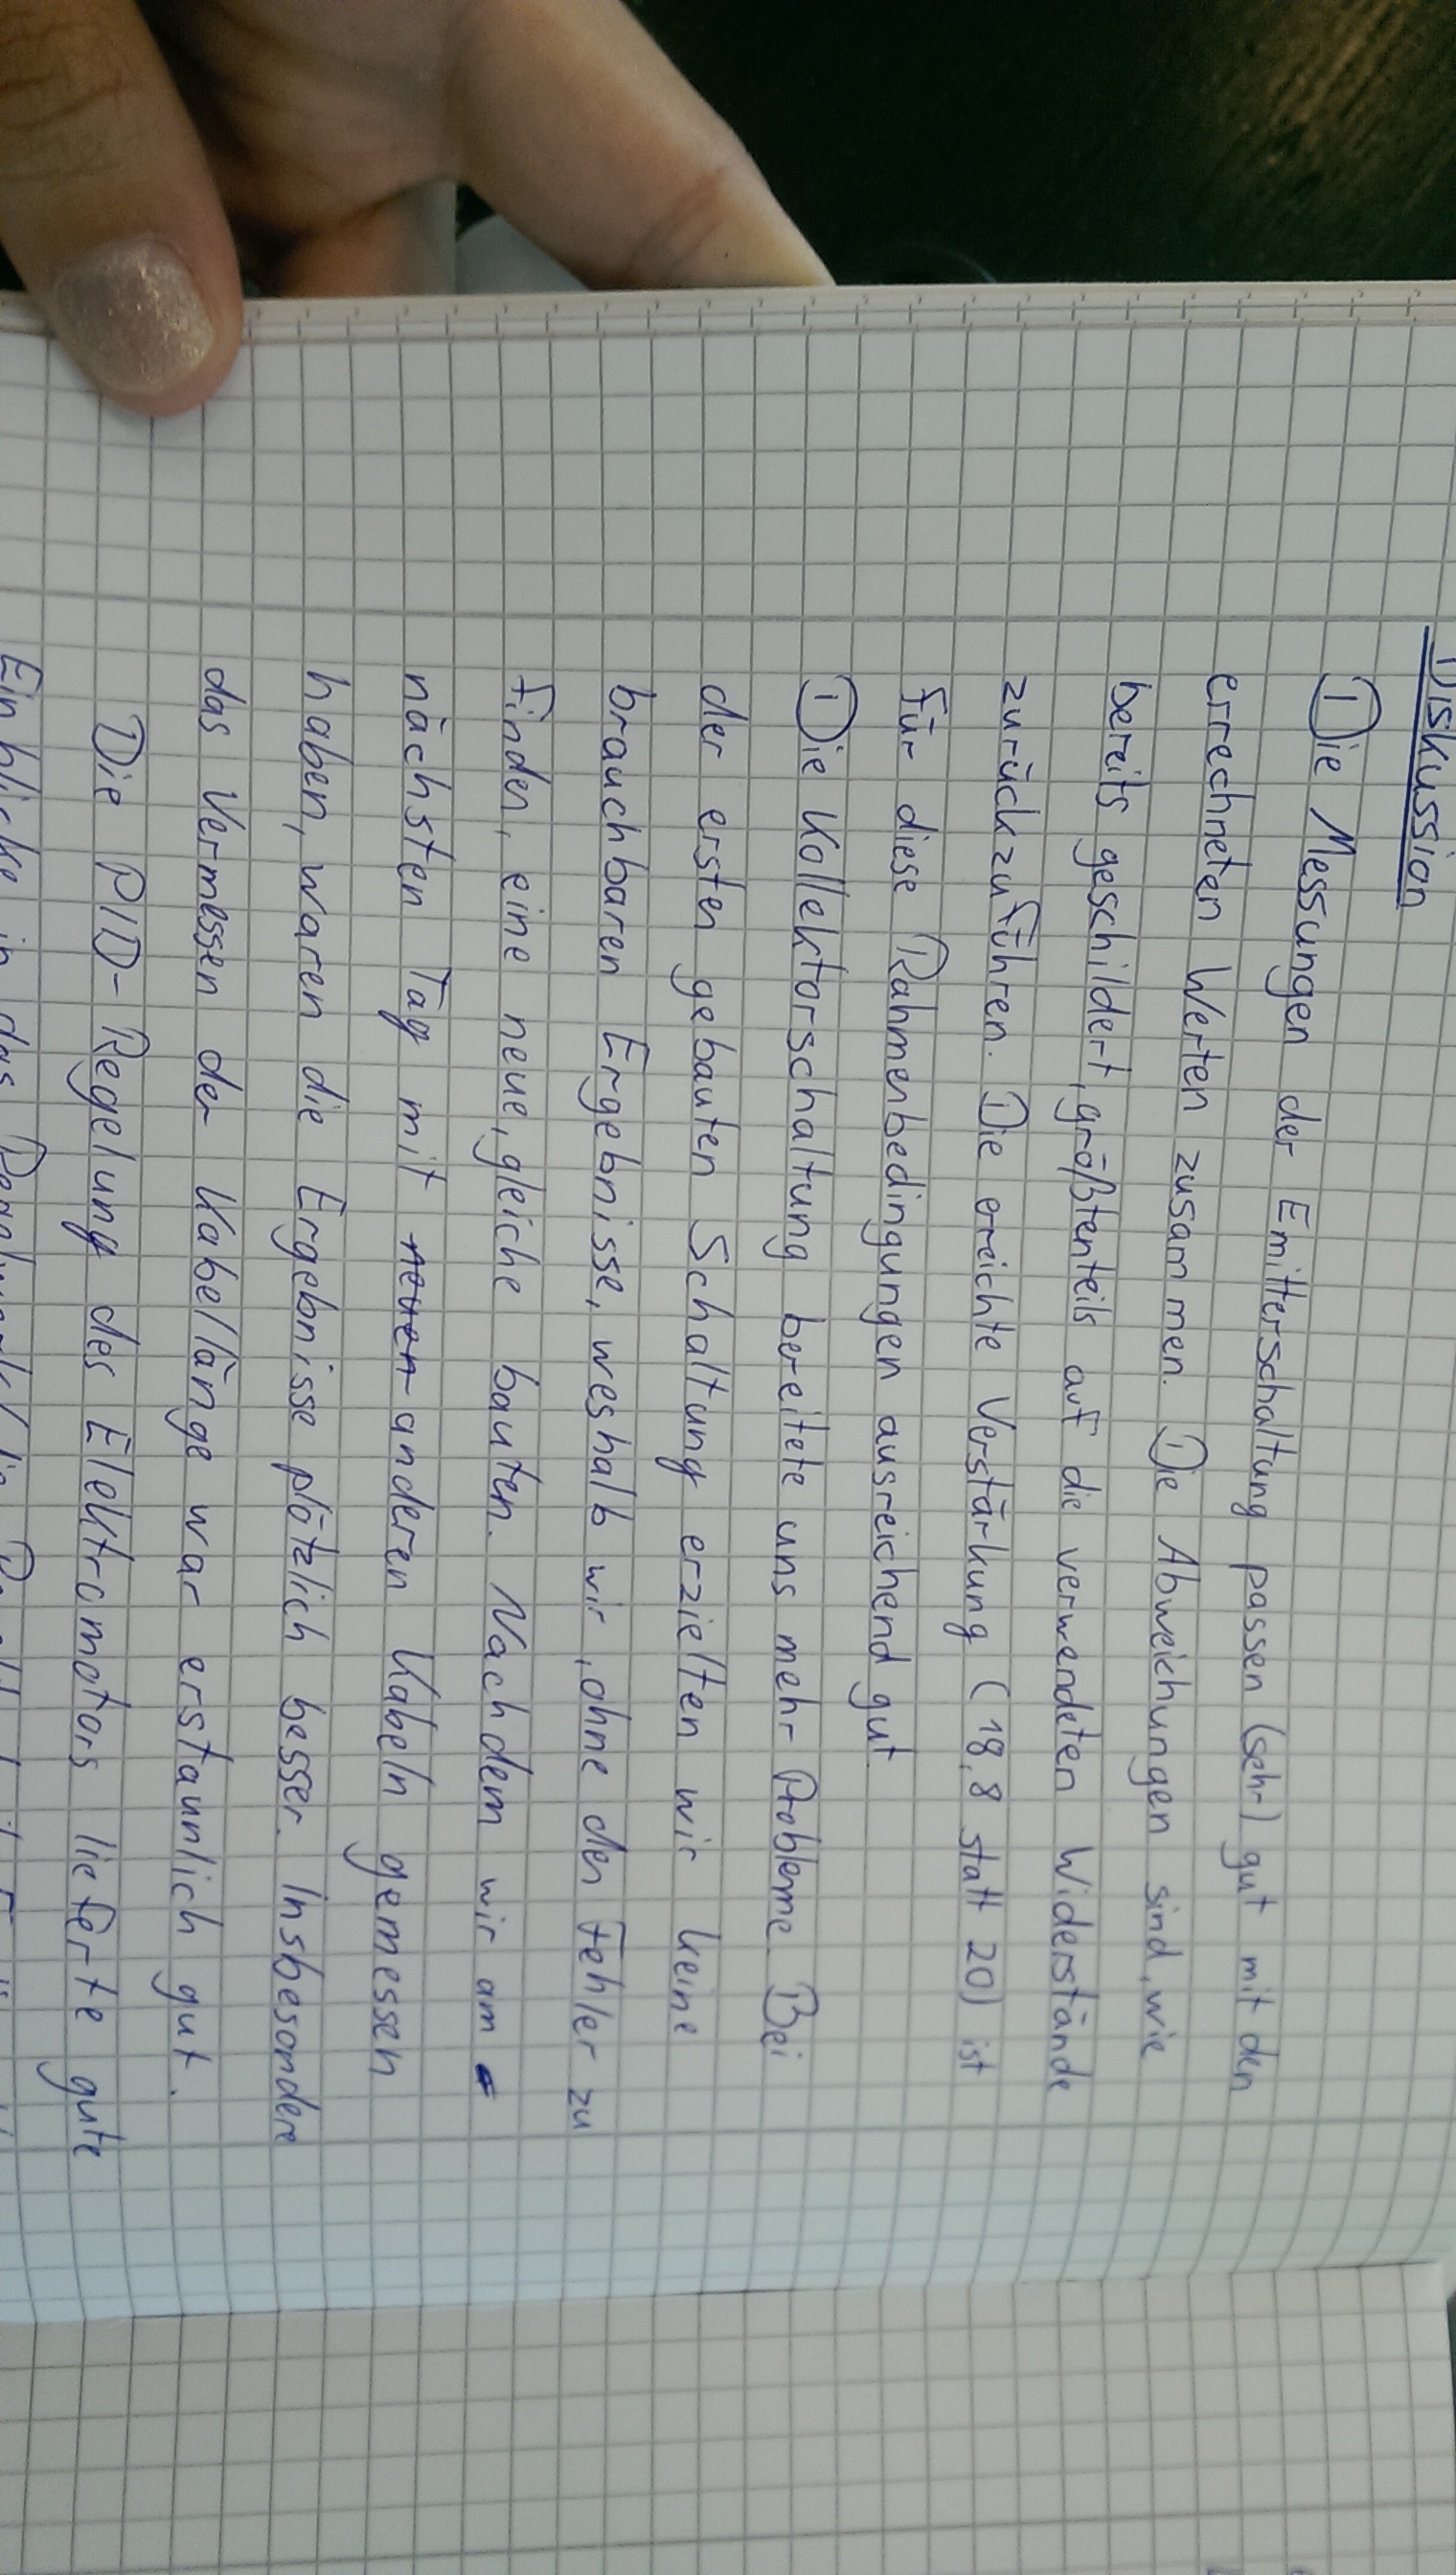 Diskussion
Die Messungen der Emitterschaltung passen (sehr) gut mit den
errechneten Werten zusammen. Die Abweichungen sind, wie
bereits geschildert, größtenteils auf die verwendeten Widerstände
zurückzuführen. Die ereichte Verstärkung (18,8 statt 20) ist
für diese Rahmenbedingungen ausreichend gut.
Die Kollektorschaltung bereitete uns mehr Probleme. Bei
der ersten gebauten Schaltung erzielten wir keine
brauchbaren Ergebnisse, weshalb wir, ohne den Fehler zu
finden, eine neue, gleiche bauten. Nachdem wir am
nächsten Tag mit neuen anderen Kabeln gemessen
haben, waren die Ergebnisse plötzlich besser. Insbesondere
das Vermessen der Kabellänge war erstaunlich gut.
Die PID-Regelung des Elektromotors lieferte gute
Einblicke in das